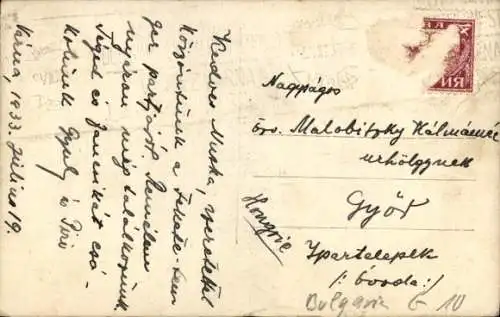 Kedves Muska, szeretettel
köszöntünk a Fekete-ten
ger partjáról. Remélem
nyáron még találkozunk.
Téged és Jancsikát csó-
kolunk Gyuf és Piri
Varna, 1933. Július 19.
Nagyságos
özv. Malobitzky Kálmánné
urhölgynek
Győr
Ipartelepek
/: óvoda :/
Hongrie
Bulgaria G 10
ИЯ